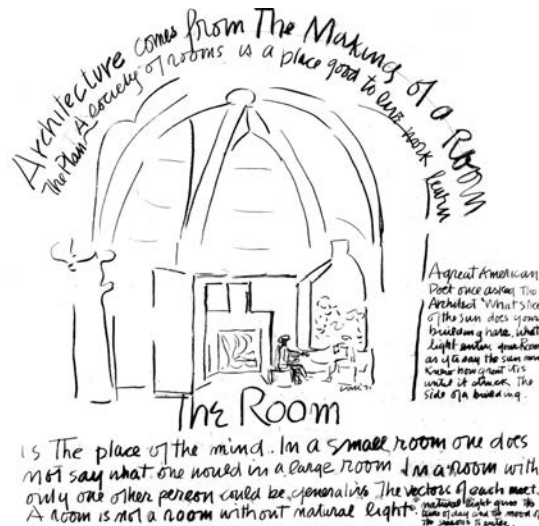 Architecture comes from The Making of a Room
The Plan A society of rooms is a place good to live work learn
A great American
Poet once asked the
Architect "What slice
of the sun does your
building have, what
light enters your Room
as if to say the sun never
knew how great it is
until it struck the
side of a building.
The Room
is The place of the mind. In a small room one does
not say what one would in a large room In a room with
only one other person could be generative The vectors of each meet.
A room is not a room without natural light
natural light gives the
time of day and the mood of
the seasons to enter